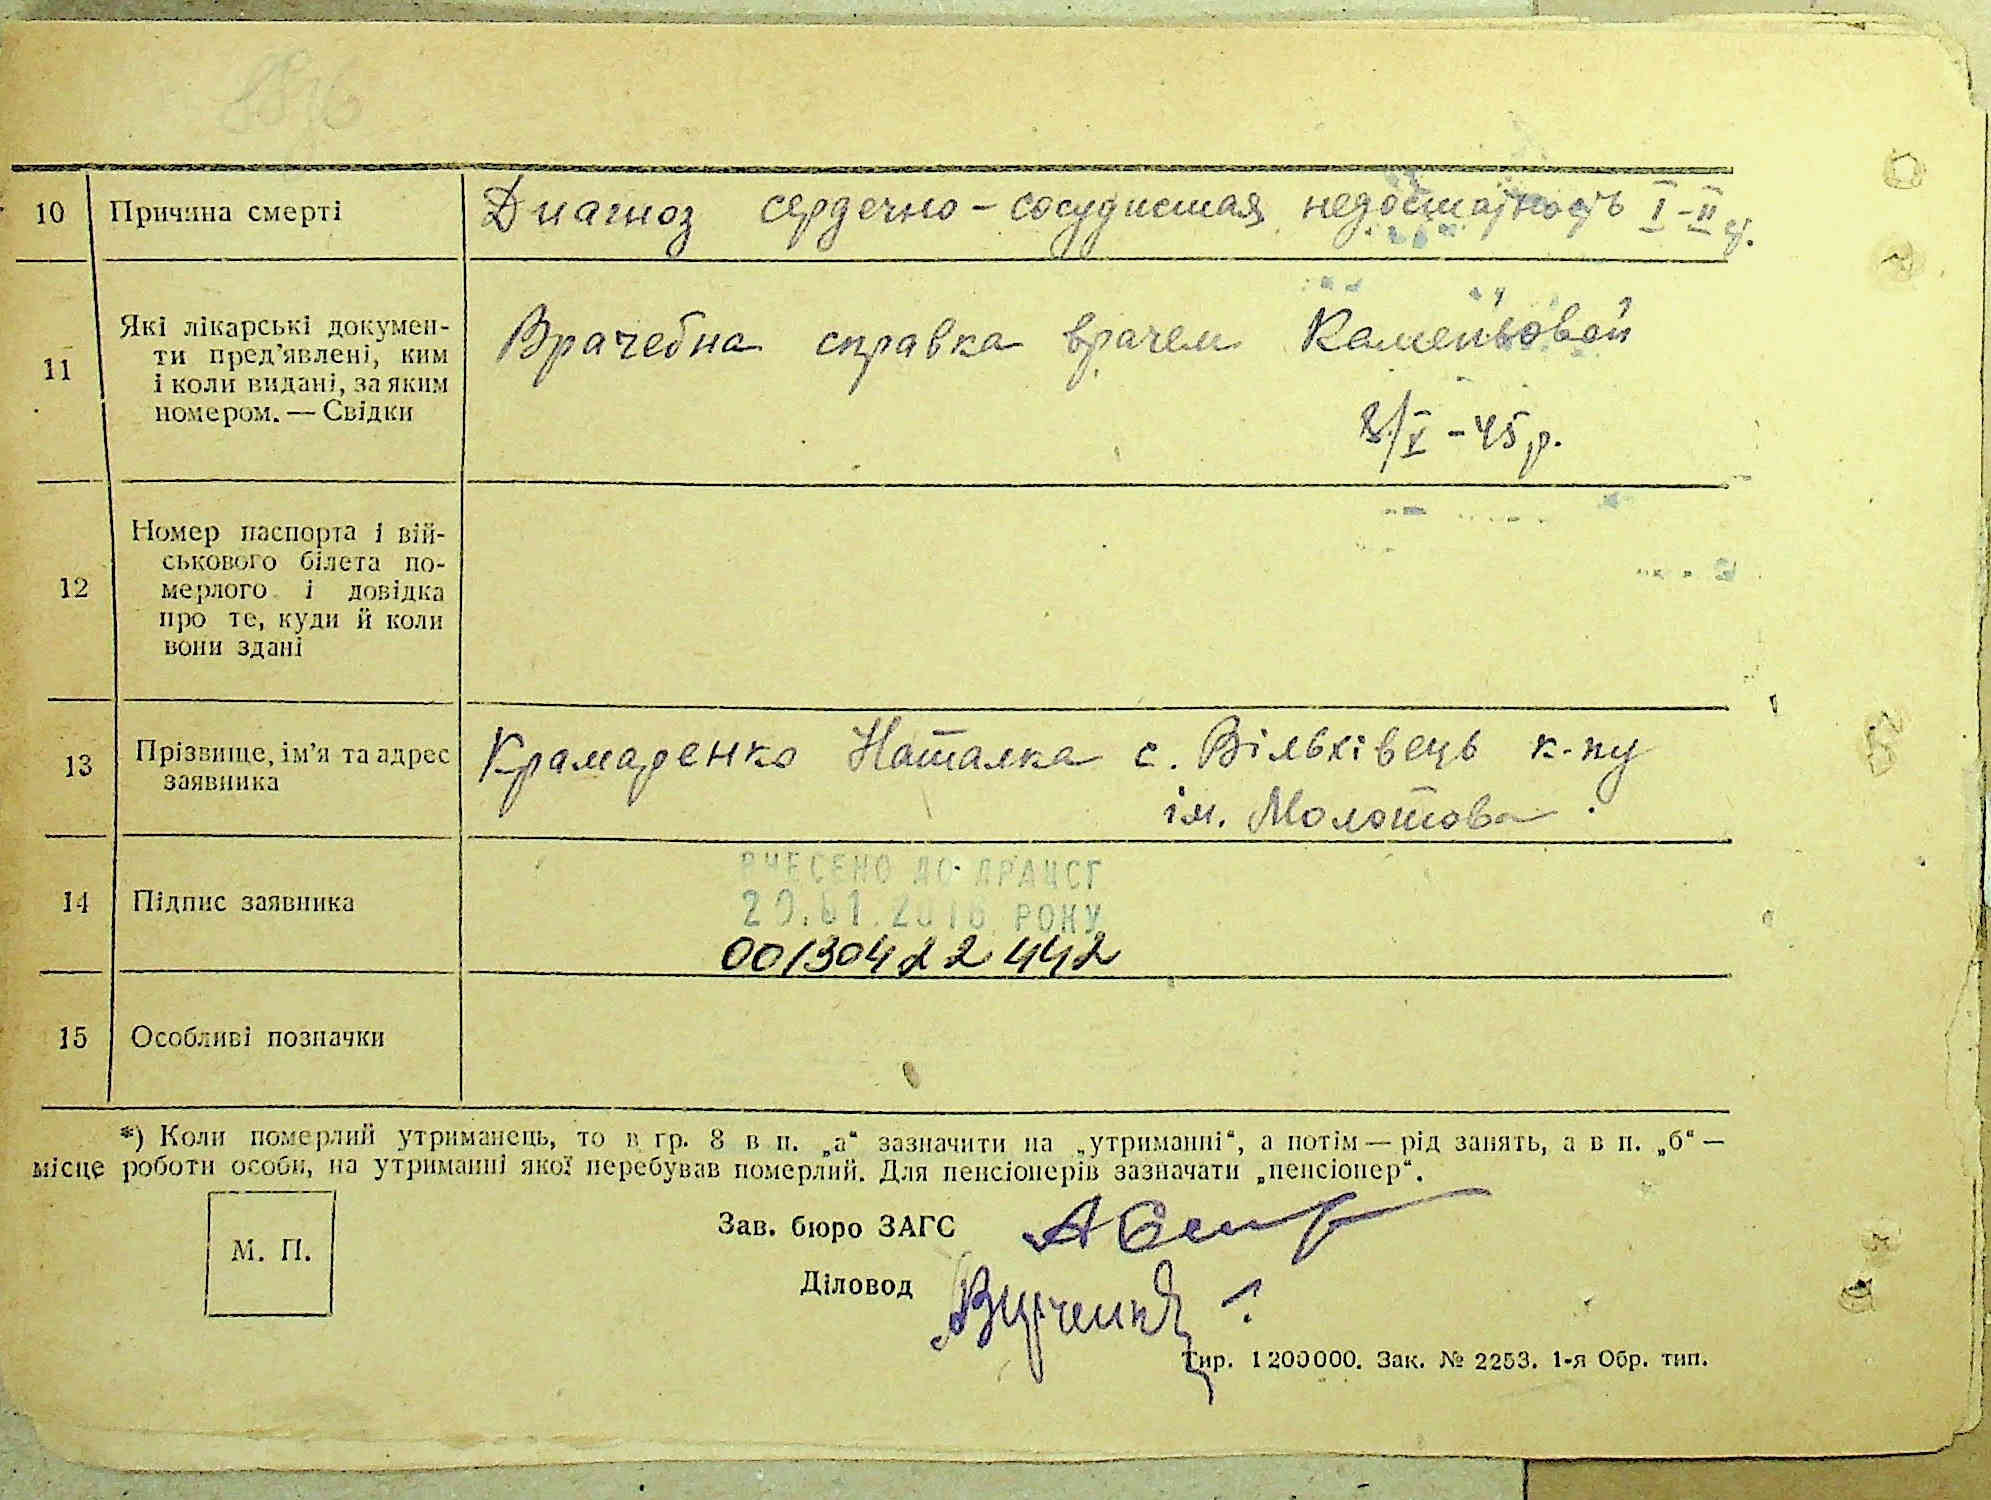 10 Причина смерті Диагноз сердечно-сосудистая недостатность I-II
11 Які лікарські докумен-
ти пред'явлені, ким
і коли видані, за яким
номером. — Свідки
Врачебна справка врачем
8/V-45р.
12 Номер паспорта і вій-
ськового білета по-
мерлого і довідка
про те, куди й коли
вони здані
13 Прізвище, ім'я та адрес
заявника
Крамаренко Наталка с. Вільхівець к-пу
ім. Молотова.
14 Підпис заявника
ВНЕСЕНО ДО ДРАЦСГ
РОКУ
00130422442
15 Особливі позначки
*) Коли померлий утриманець, то в гр. 8 в п. „а“ зазначити на „утриманні“, а потім — рід занять, а в п. „б“ —
місце роботи особи, на утриманні якої перебував померлий. Для пенсіонерів зазначати „пенсіонер“.
М. П.
Зав. бюро ЗАГС
Діловод
Тир. 1200000. Зак. № 2253. 1-я Обр. тип.